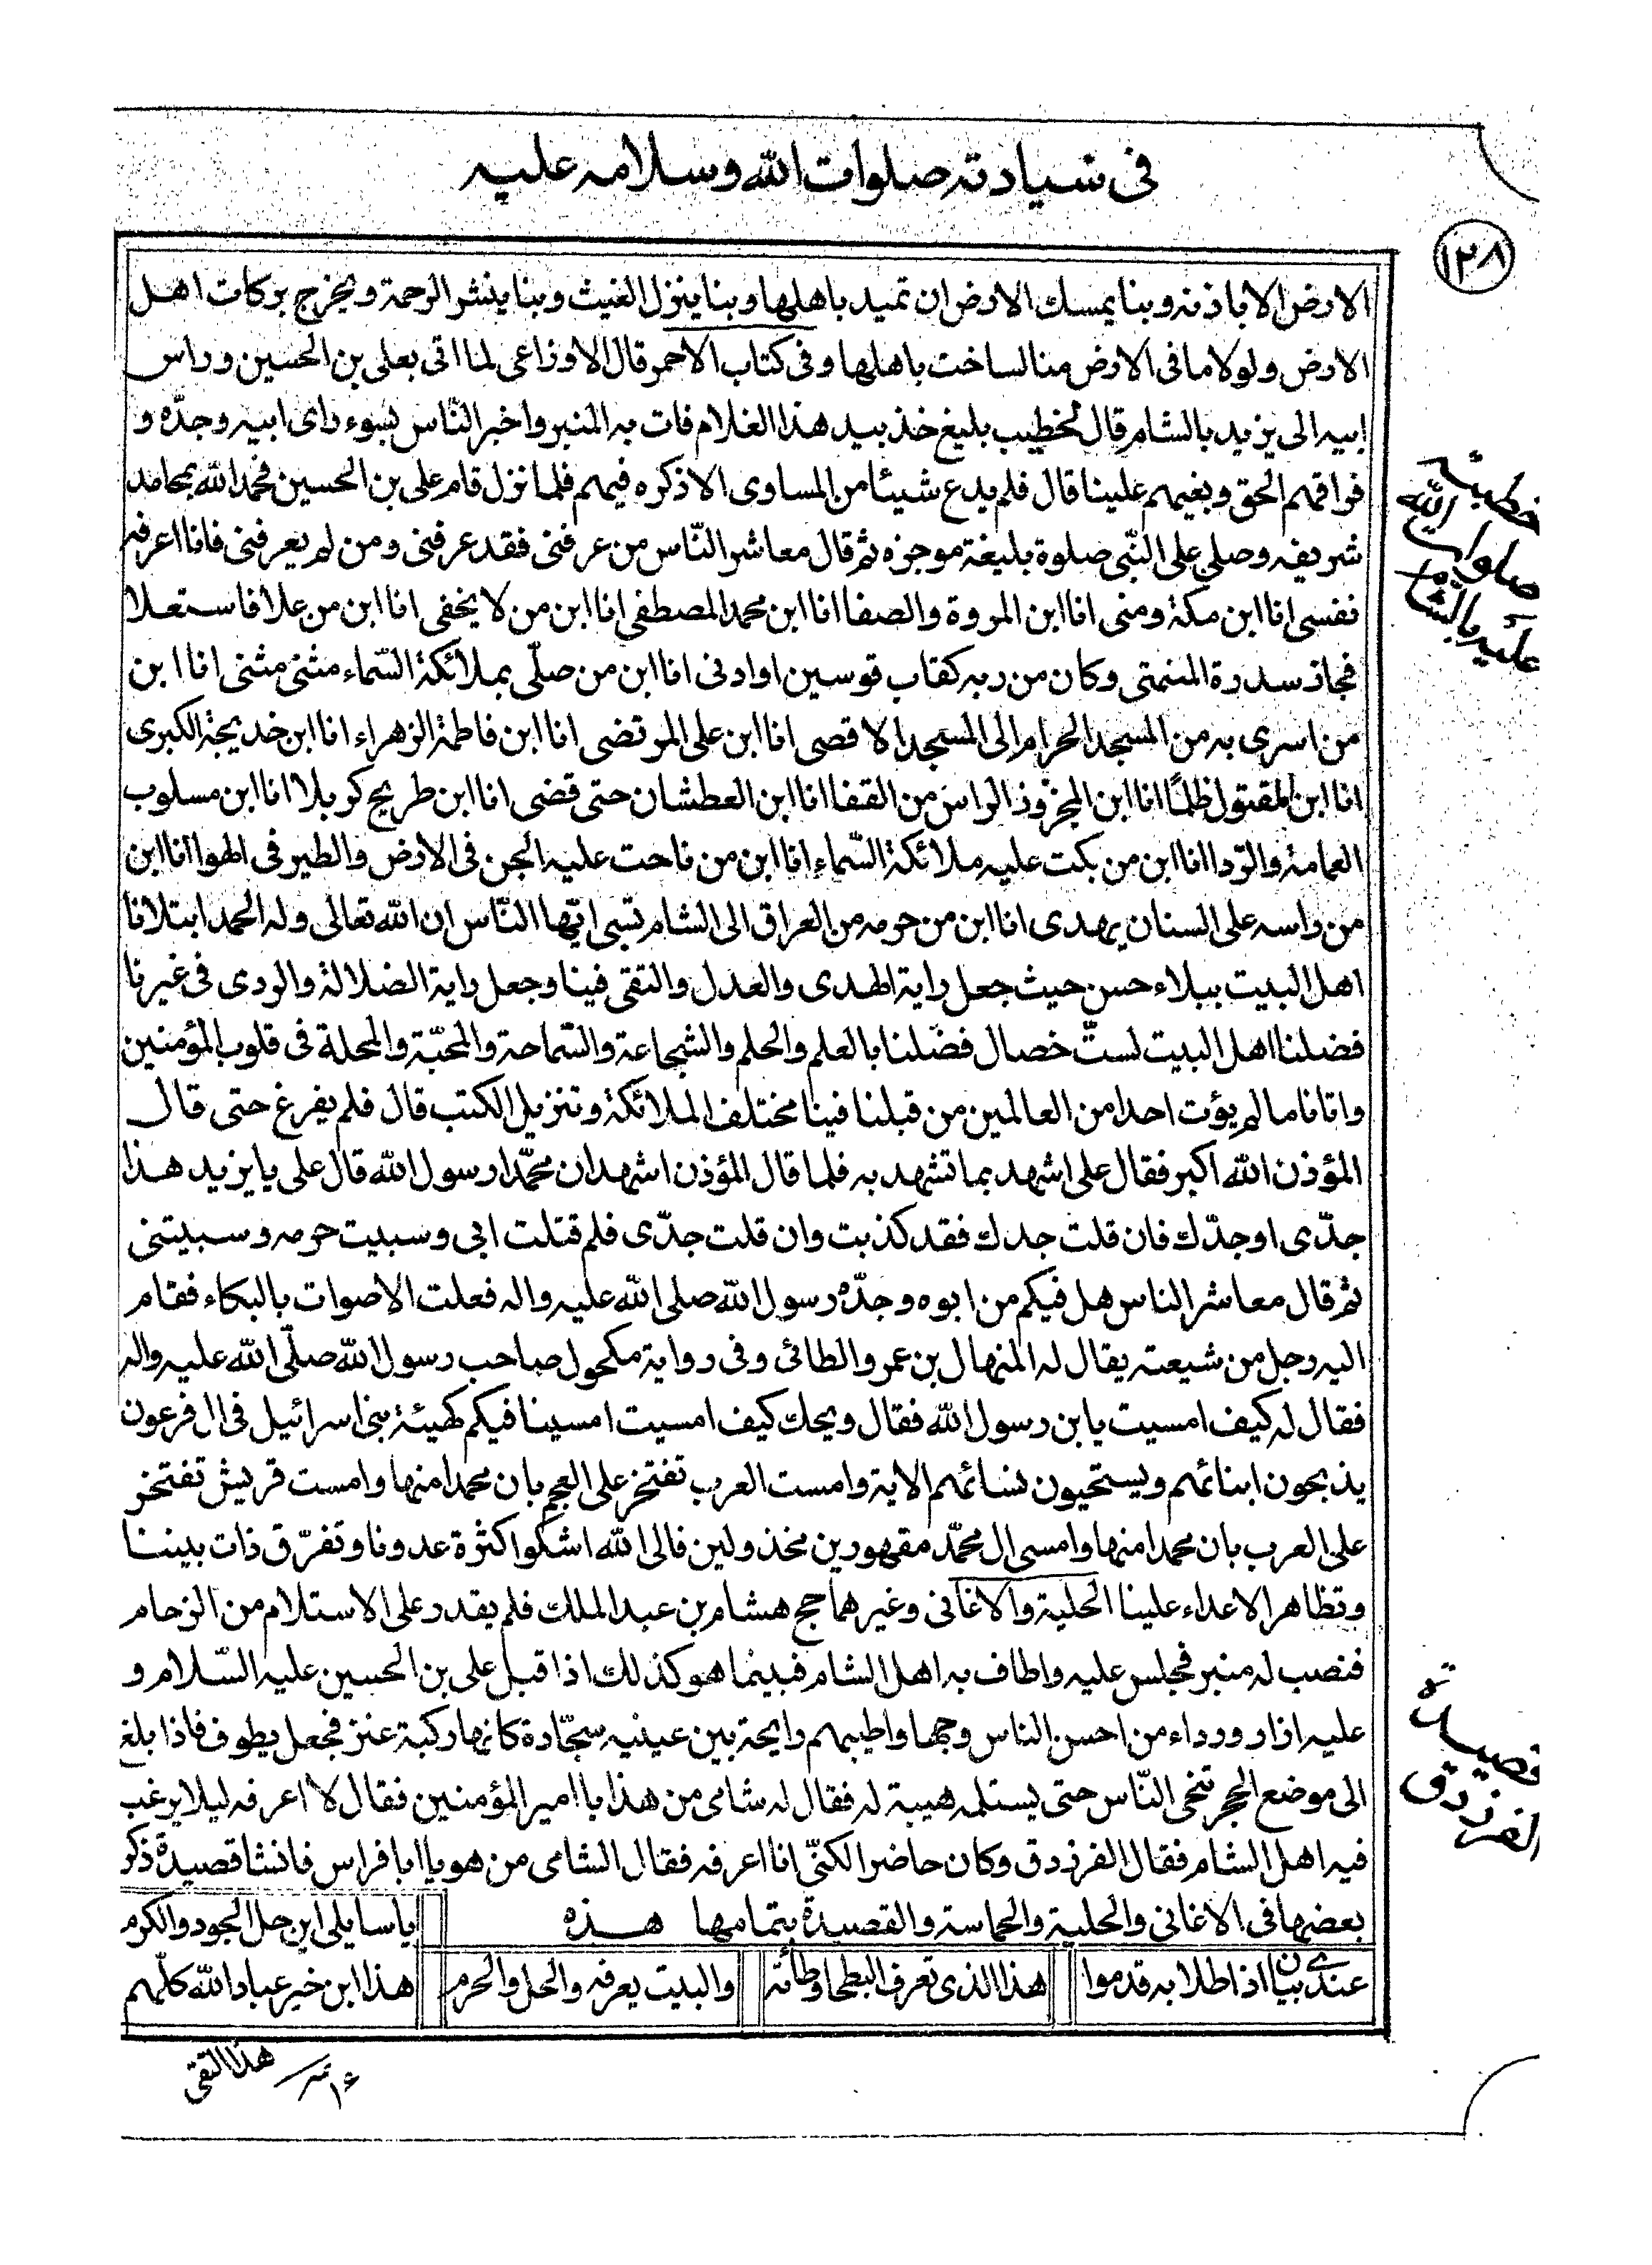 فى سيادته صلوات الله وسلامه عليه
١٢٨
الارض الا باذنه وبنا يمسك الارض ان تميد باهلها وبنا ينزل الغيث وبنا ينشر الرحمة ويخرج بركات اهل
الارض ولولا ما فى الارض منا لساخت باهلها وفى كتاب الاحمر قال الاوزاعى لما اتى بعلى بن الحسين وراس
ابيه الى يزيد بالشام قال لخطيب بليغ خذ بيد هذا الغلام فات به المنبر واخبر النّاس بسوء راى ابيه وجدّه و
فراقهم الحق وبغيهم علينا قال فلم يدع شيئا من المساوى الا ذكره فيهم فلما نزل قام على بن الحسين فحمد الله بمحامد
شريفه وصلى على النّبى صلوة بليغة موجزه ثم قال معاشر النّاس من عرفنى فقد عرفنى ومن لم يعرفنى فانا اعرفه
نفسى انا ابن مكة ومنى انا ابن المروة والصفا انا ابن محمد المصطفى انا ابن من لا يخفى انا ابن من علا فاستعلا
فجاز سدرة المنتهى وكان من ربه كقاب قوسين او ادنى انا ابن من صلّى بملائكة السّماء مثنى مثنى انا ابن
من اسرى به من المسجد الحرام الى المسجد الاقصى انا ابن على المرتضى انا ابن فاطمة الزهراء انا ابن خديجة الكبرى
انا ابن المقتول ظلمًا انا ابن المجزوز الراس من القفا انا ابن العطشان حتى قضى انا ابن طريح كربلا انا ابن مسلوب
العمامة والرّدا انا ابن من بكت عليه ملائكة السّماء انا ابن من ناحت عليه الجن فى الارض والطير فى الهوا انا ابن
من راسه على السنان يهدى انا ابن من حرمه من العراق الى الشام تسبى ايّها النّاس ان الله تعالى وله الحمد ابتلانا
اهل البيت ببلاء حسن حيث جعل راية الهدى والعدل والتقى فينا وجعل راية الضلالة والردى فى غيرنا
فضلنا اهل البيت لستّ خصال فضّلنا بالعلم والحلم والشجاعة والسّماحة والمحبّة والمحلة فى قلوب المؤمنين
واتانا ما لم يؤت احدا من العالمين من قبلنا فينا مختلف الملائكة وتنزيل الكتب قال فلم يفرغ حتى قال
المؤذن الله اكبر فقال على اشهد بما تشهد به فلما قال المؤذن اشهد ان محمّدا رسول الله قال على يا يزيد هذا
جدّى او جدّك فان قلت جدك فقد كذبت وان قلت جدّى فلم قتلت ابى وسبيت حرمه وسبيتنى
ثم قال معاشر الناس هل فيكم من ابوه وجدّه رسول الله صلى الله عليه واله فعلت الاصوات بالبكاء فقام
اليه رجل من شيعته يقال له المنهال بن عمرو الطائى وفى رواية مكحول صاحب رسول الله صلّى الله عليه واله
فقال له كيف امسيت يابن رسول الله فقال ويحك كيف امسيت امسينا فيكم كهيئة بنى اسرائيل فى ال فرعون
يذبحون ابنائهم ويستحيون نسائهم الاية وامست العرب تفتخر على العجم بان محمدا منها وامست قريش تفتخر
على العرب بان محمدا منها وامسى ال محمّد مقهورين مخذولين فالى الله اشكوا كثرة عدونا وتفرّق ذات بيننا
وتظاهر الاعداء علينا الحلية والاغانى وغيرهما حج هشام بن عبد الملك فلم يقدر على الاستلام من الزحام
فنصب له منبر فجلس عليه واطاف به اهل الشام فبينما هو كذلك اذا قبل على بن الحسين عليه السّلام و
عليه ازار ورداء من احسن الناس وجها واطيبهم رايحة بين عينيه سجّادة كانها ركبة عنز فجعل يطوف فاذا بلغ
الى موضع الحجر تنحى النّاس حتى يستلمه هيبة له فقال له شامى من هذا يا امير المؤمنين فقال لا اعرفه ليلا يرغب
فيه اهل الشام فقال الفرزدق وكان حاضرا لكنّى انا اعرفه فقال الشامى من هو يا ابا فراس فانشا قصيدة ذكر
بعضها فى الاغانى والحلية والحماسة والقصيدة بتمامها هذه يا سايلى اين حل الجود والكرم
عندى بيان اذا طلابه قدموا هذا الذى تعرف البطحا وطأته والبيت يعرفه والحل والحرم هذا ابن خير عباد الله كلّهم
هذا التقى
خطبته صلوات الله عليه بالشام
قصيدة الفرزدق